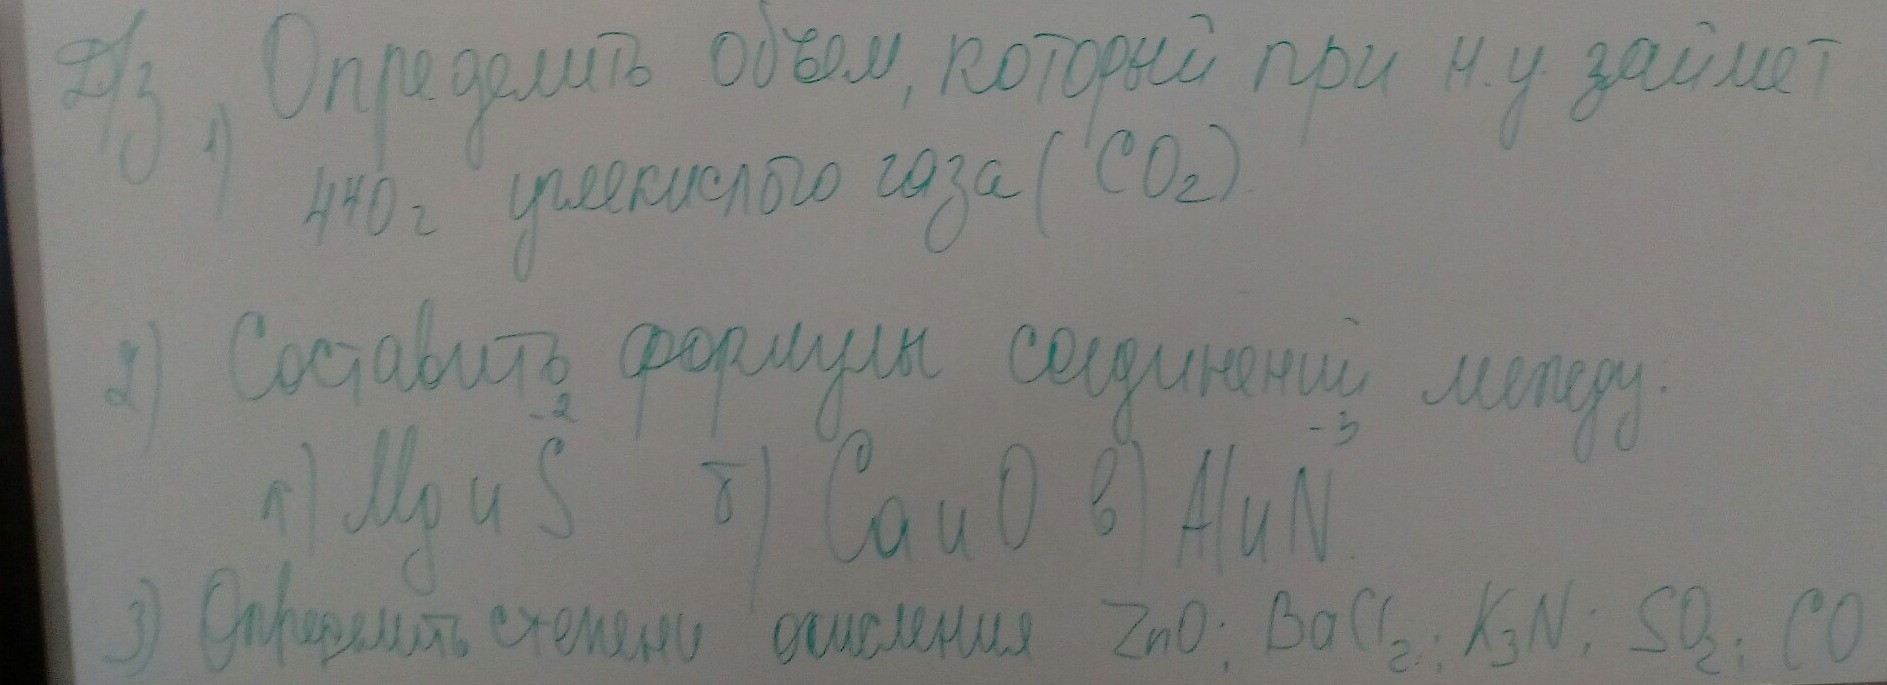 Д/з, Определить объем, который при н.у. займет
1) 440г углекислого газа (CO₂)
2) Составить формулы соединений между:
а) Mg и S⁻² б) Ca и O в) Al и N⁻³.
3) Определить степени окисления ZnO; BaCl₂; K₃N; SO₂; CO